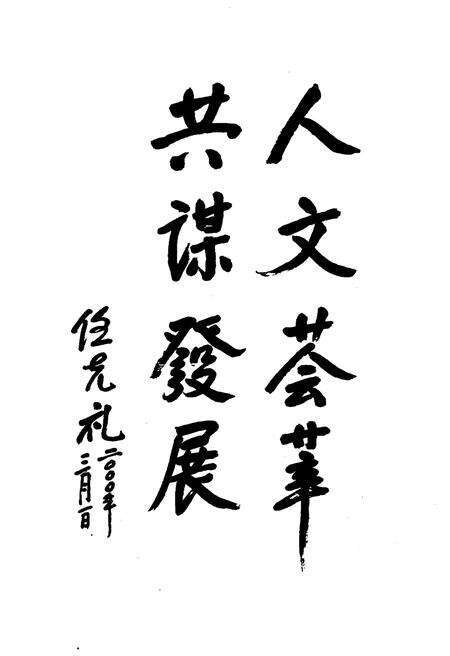 人文荟萃
共谋發展
任克礼
二〇〇年
三月一日